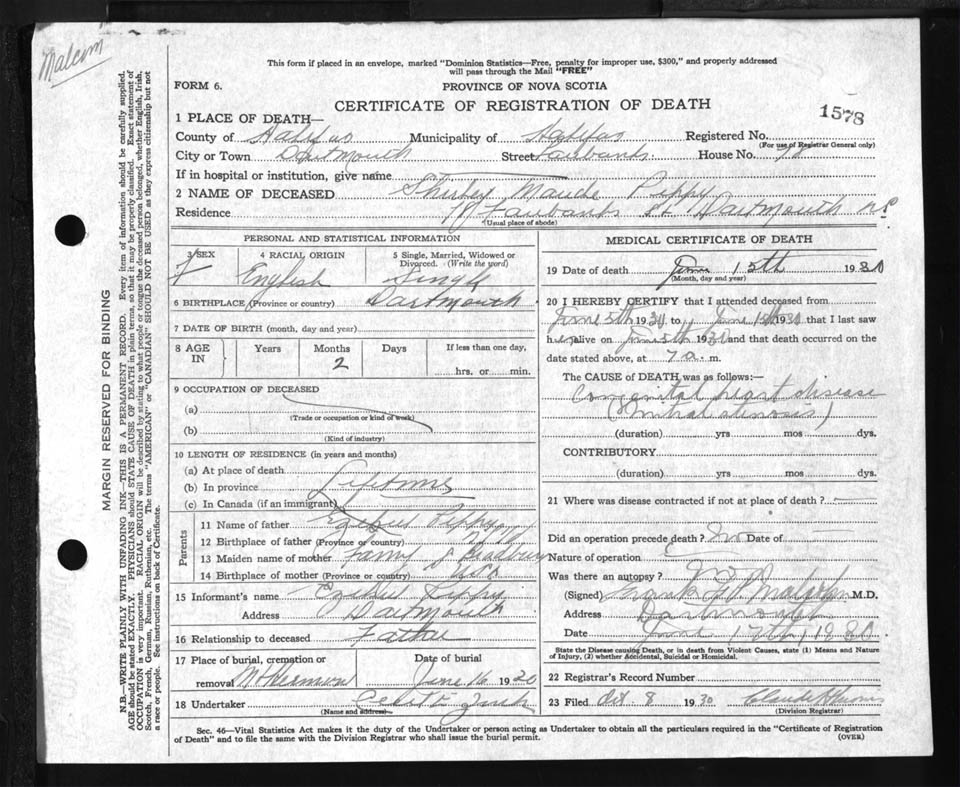 Malcom
This form if placed in an envelope, marked "Dominion Statistics—Free, penalty for improper use, $300," and properly addressed
will pass through the Mail "FREE"
FORM 6.
PROVINCE OF NOVA SCOTIA
CERTIFICATE OF REGISTRATION OF DEATH
1578
1 PLACE OF DEATH—
County of Halifax Municipality of Halifax Registered No.
(For use of Registrar General only)
City or Town Dartmouth Street Fairbanks House No. 78
If in hospital or institution, give name
2 NAME OF DECEASED Shirley Maude Pippy
Residence Fairbanks St Dartmouth
(Usual place of abode)
PERSONAL AND STATISTICAL INFORMATION
3 SEX
4 RACIAL ORIGIN
English
5 Single, Married, Widowed or
Divorced. (Write the word)
Single
6 BIRTHPLACE (Province or country) Dartmouth
7 DATE OF BIRTH (month, day and year)
8 AGE
IN
Years
Months
2
Days
If less than one day,
hrs. or min.
9 OCCUPATION OF DECEASED
(a)
(Trade or occupation or kind of work)
(b)
(Kind of industry)
10 LENGTH OF RESIDENCE (in years and months)
(a) At place of death
(b) In province Lifetime
(c) In Canada (if an immigrant)
Parents
11 Name of father Pippy
12 Birthplace of father (Province or country)
13 Maiden name of mother Fanny J Bradbury
14 Birthplace of mother (Province or country)
15 Informant's name Pippy
Address Dartmouth
16 Relationship to deceased Father
17 Place of burial, cremation or
removal Mt Hermon
Date of burial
June 16 1930
18 Undertaker
(Name and address)
MEDICAL CERTIFICATE OF DEATH
19 Date of death June 15th 1930
(Month, day and year)
20 I HEREBY CERTIFY that I attended deceased from
June 5th 1930 to June 15th 1930 that I last saw
her alive on June 5th 1930 and that death occurred on the
date stated above, at 7 a. m.
The CAUSE OF DEATH was as follows:—
Congenital heart disease
(Mitral stenosis)
(duration) yrs mos dys.
CONTRIBUTORY
(duration) yrs mos dys.
21 Where was disease contracted if not at place of death?
Did an operation precede death? No Date of
Nature of operation
Was there an autopsy? No
(Signed) M.D.
Address Dartmouth
Date June 1930
State the Disease causing Death, or in death from Violent Causes, state (1) Means and Nature
of Injury, (2) whether Accidental, Suicidal or Homicidal.
22 Registrar's Record Number
23 Filed Oct. 8 1930
(Division Registrar)
Sec. 46—Vital Statistics Act makes it the duty of the Undertaker or person acting as Undertaker to obtain all the particulars required in the "Certificate of Registration
of Death" and to file the same with the Division Registrar who shall issue the burial permit.
(OVER)
MARGIN RESERVED FOR BINDING
N.B.—WRITE PLAINLY WITH UNFADING INK—THIS IS A PERMANENT RECORD. Every item of information should be carefully supplied.
AGE should be stated EXACTLY. PHYSICIANS should STATE CAUSE OF DEATH in plain terms, so that it may be properly classified. Exact statement of
OCCUPATION is very important. RACIAL ORIGIN will be described by stating to what people or tongue the deceased person belonged, whether English, Irish,
Scotch, French, German, Russian, Ruthenian, etc. The terms "AMERICAN" or "CANADIAN" SHOULD NOT BE USED as they express citizenship but not
a race or people. See instructions on back of Certificate.